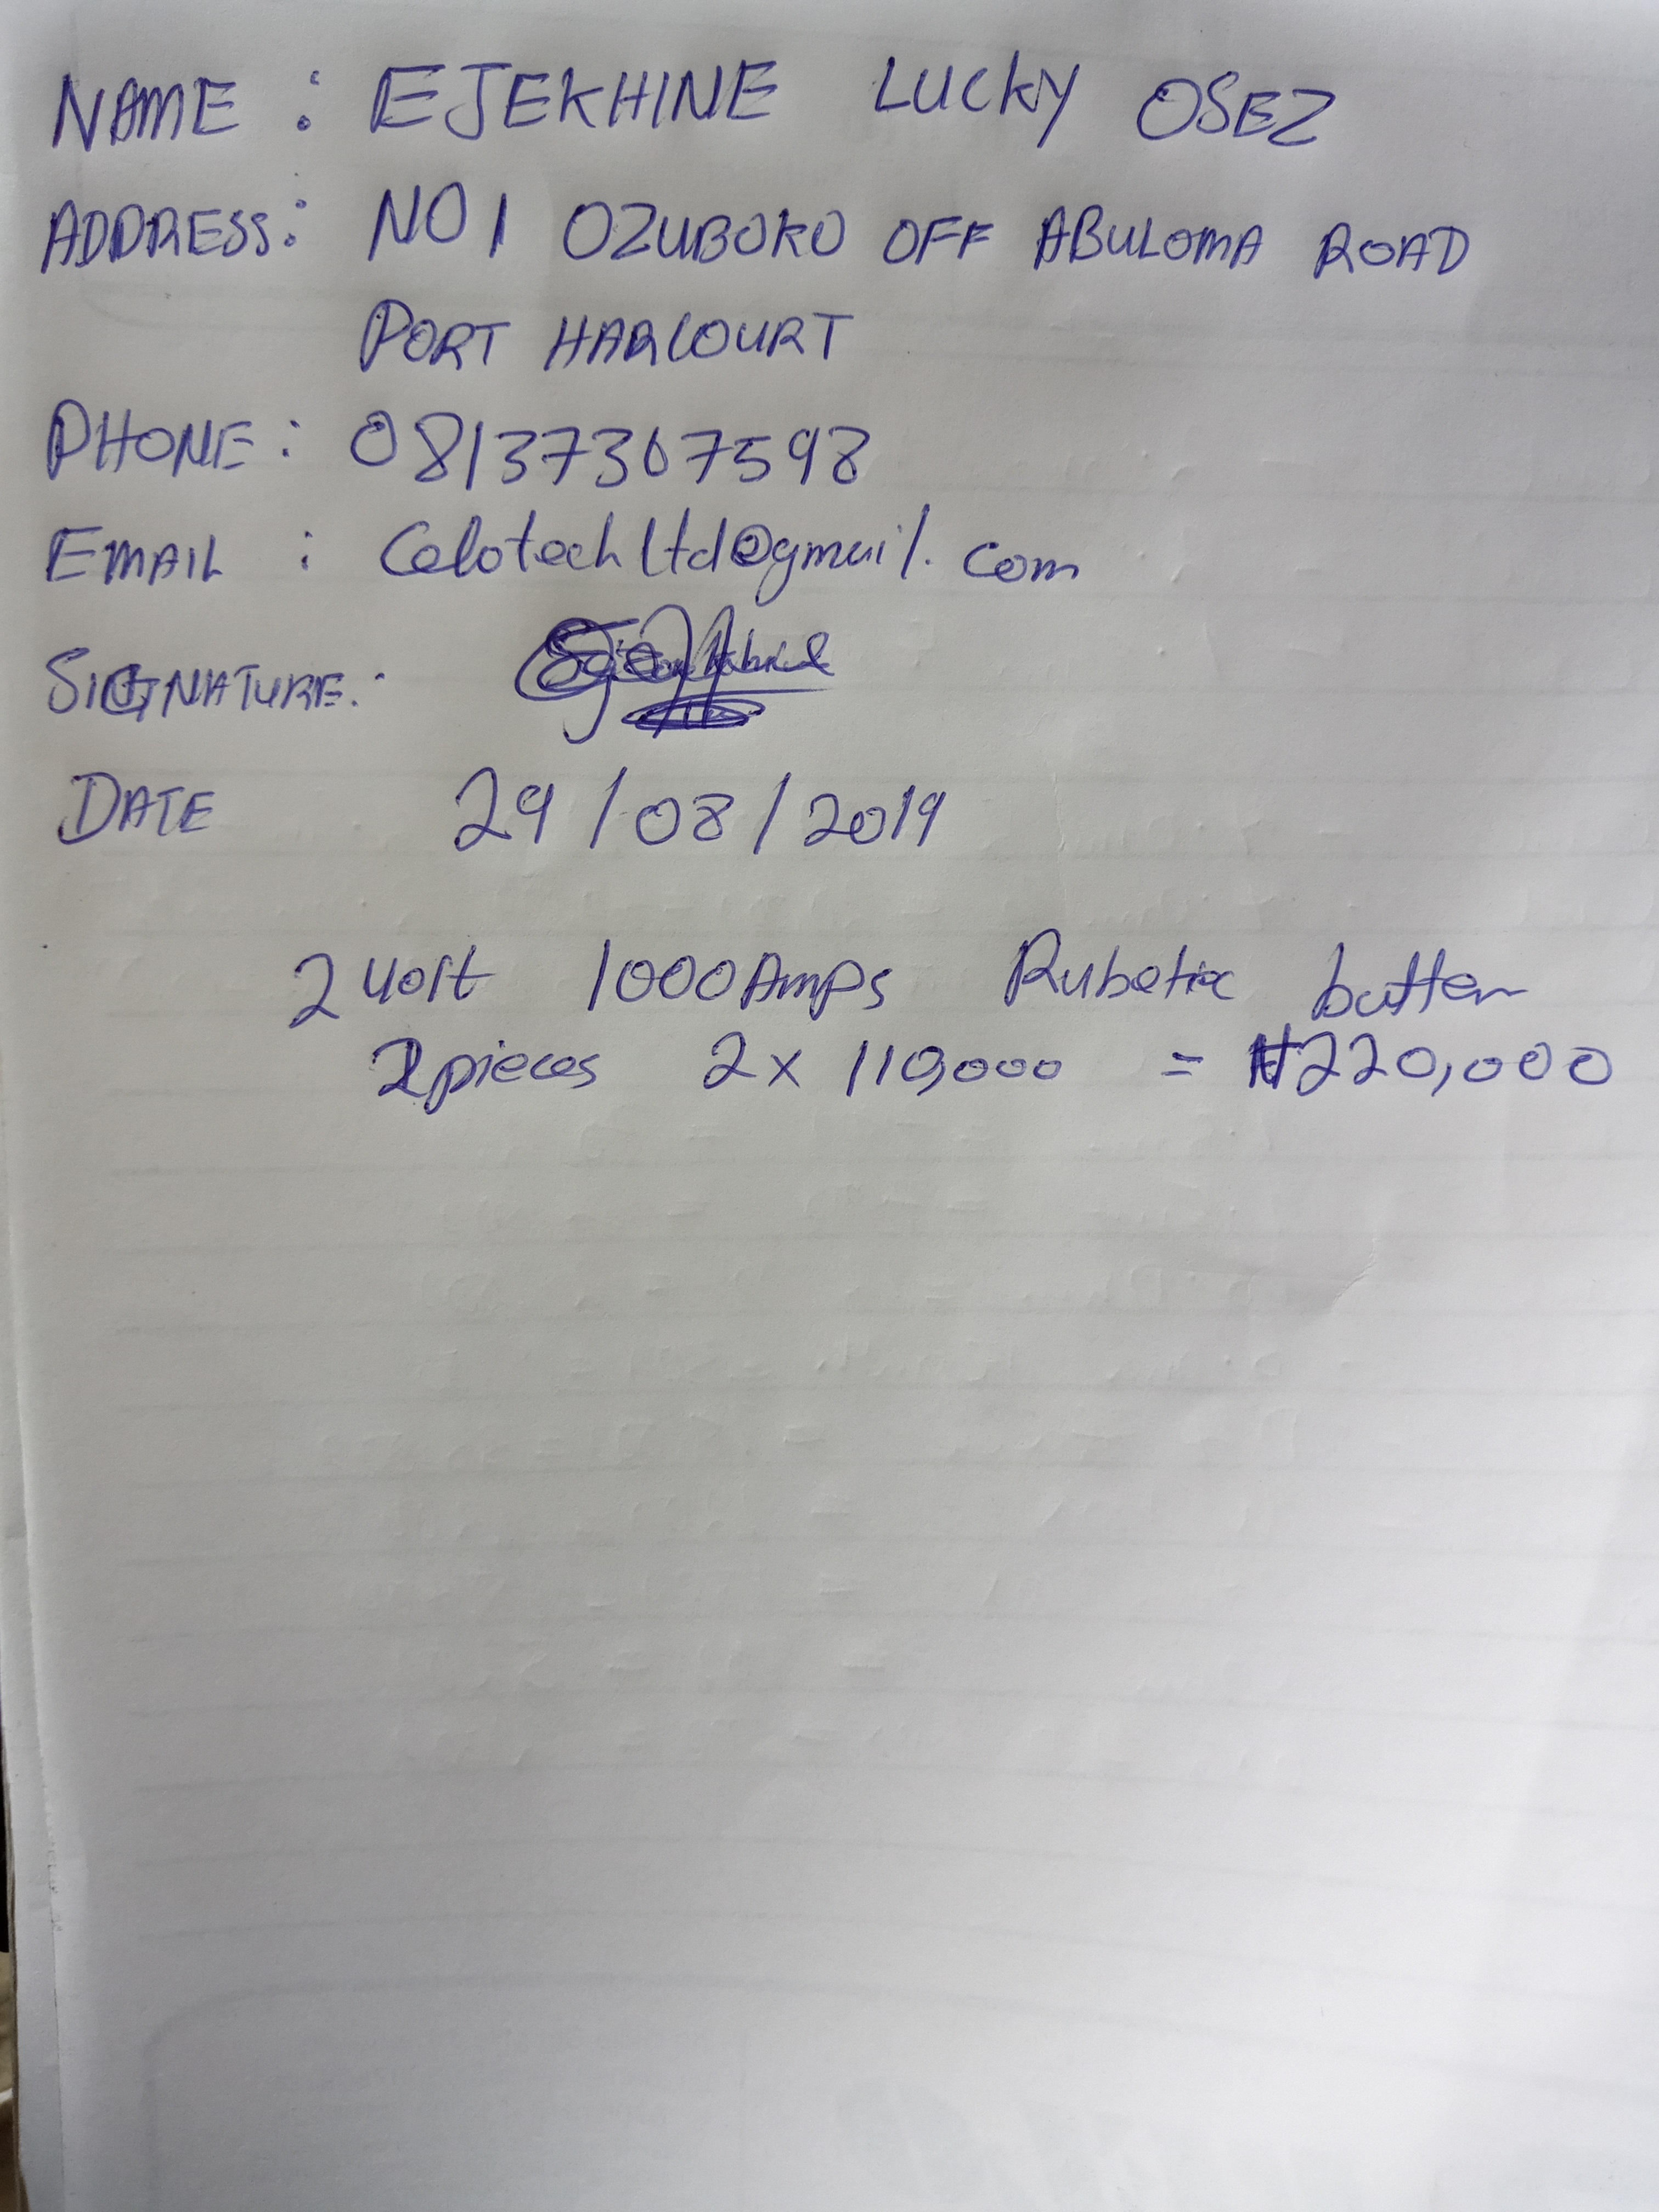 NAME : EJEKHINE LUCKY OSEZ
ADDRESS: NO 1 OZUBOKO OFF ABULOMA ROAD
PORT HARCOURT
PHONE: 08137307598
EMAIL : Celotechltd@gmail.com
SIGNATURE:
DATE 29/08/2019
2 volt 1000Amps
2pieces 2x 110,000 = ₦220,000